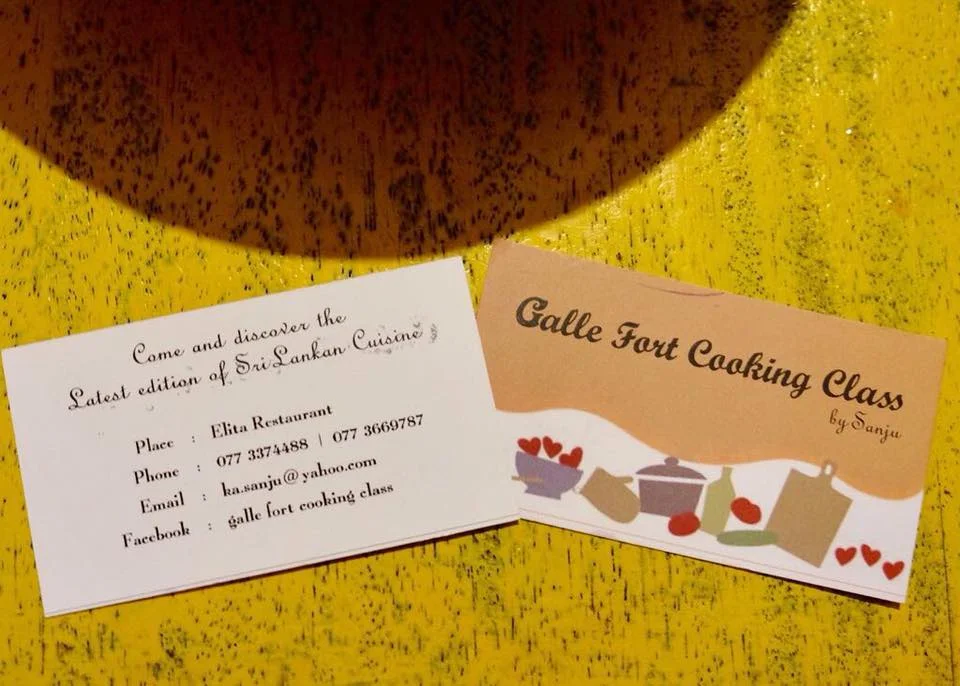 Come and discover the
Latest edition of Sri Lankan Cuisine
Place : Elita Restaurant
Phone : 077 3374488 | 077 3669787
Email : ka.sanju@yahoo.com
Facebook : galle fort cooking class
Galle Fort Cooking Class
by Sanju